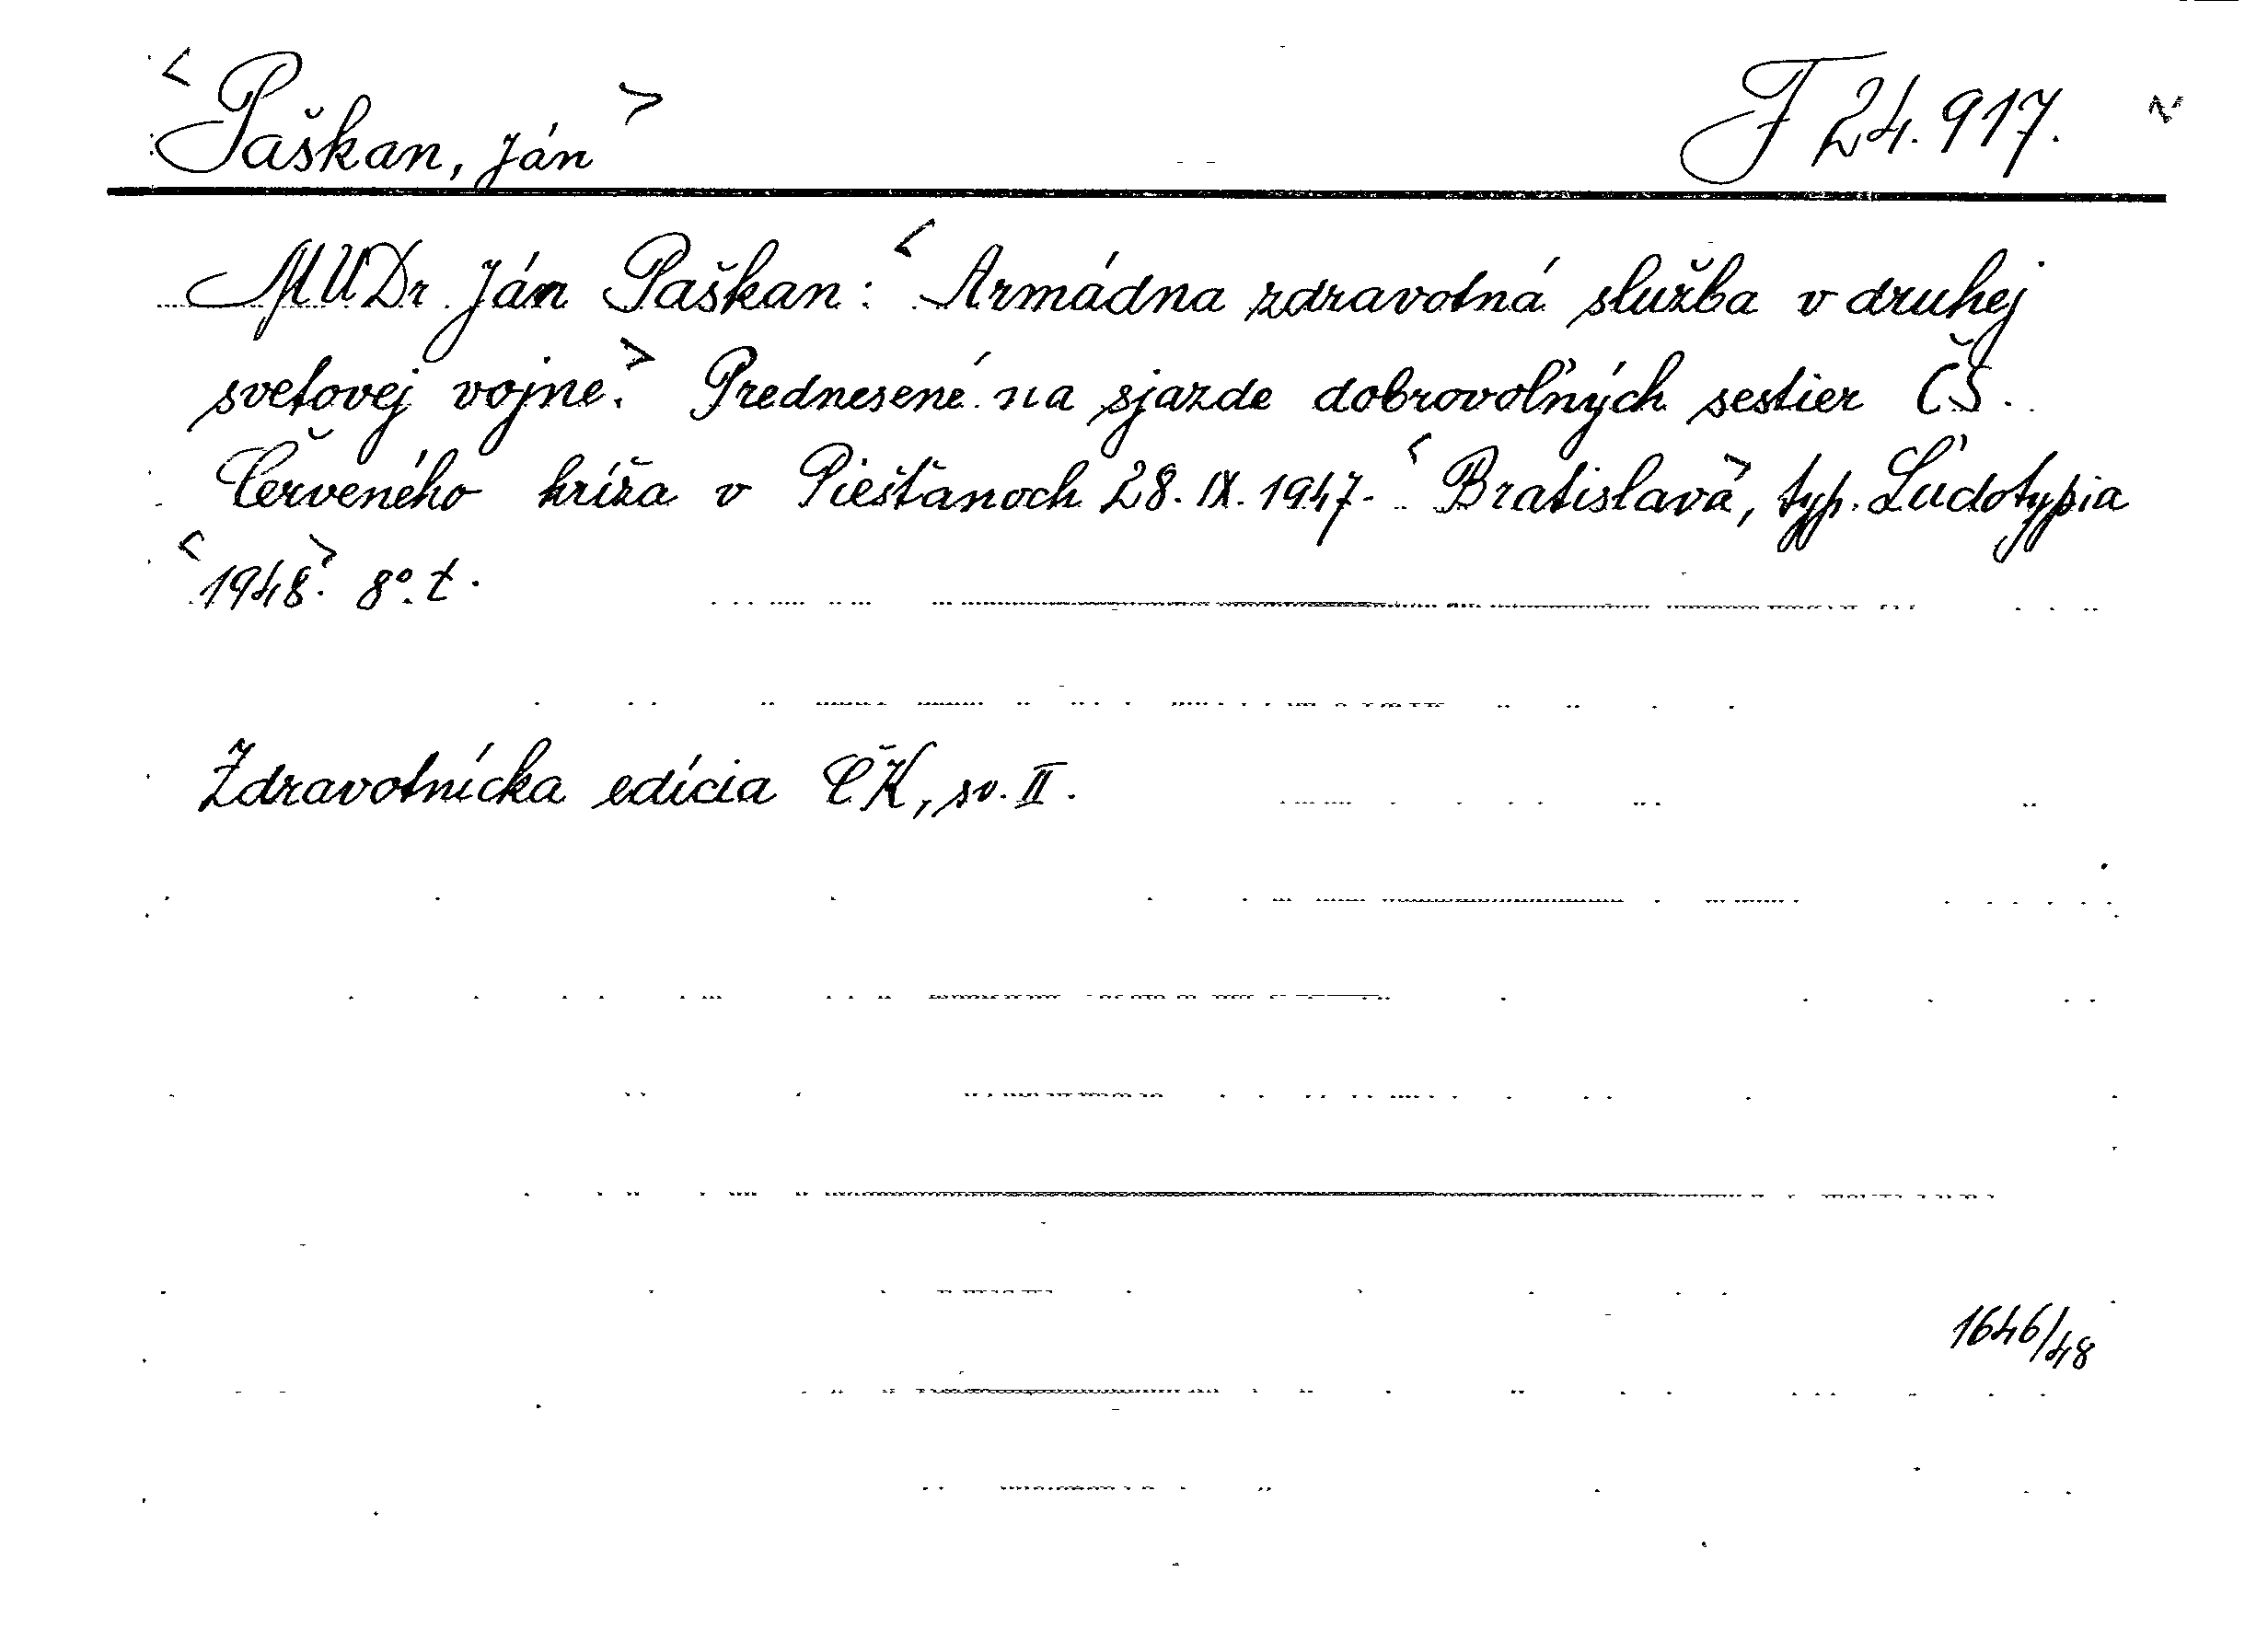 <Paškan, Ján> F 24.917.
MUDr. Ján Paškan: <Armádna zdravotná služba v druhej
svetovej vojne.> Prednesené na sjazde dobrovoľných sestier ČS.
Červeného kríža v Piešťanoch 28. IX. 1947. <Bratislava>, typ. Ľudotypia
<1948>. 8°. t.
Zdravotnícka edícia ČK, sv. II.
1646/48